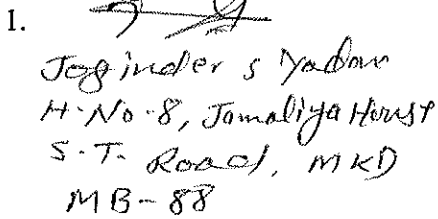 1.
Joginder S Yadav
H-No-8, Jamaliya House
S.T. Road, MKD
MB-88